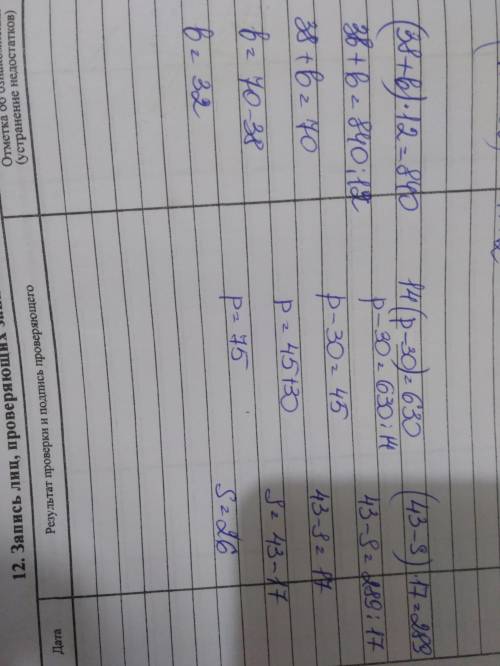 12. Запись лиц, проверяющих
Дата
Результат проверки и подпись проверяющего
(устранение недостатков)
(38+b)·12=840
38+b=840:12
38+b=70
b=70-38
b=32
14(p-30)=630
p-30=630:14
p-30=45
p=45+30
p=75
(43-S)·17=289
43-S=289:17
43-S=17
S=43-17
S=26